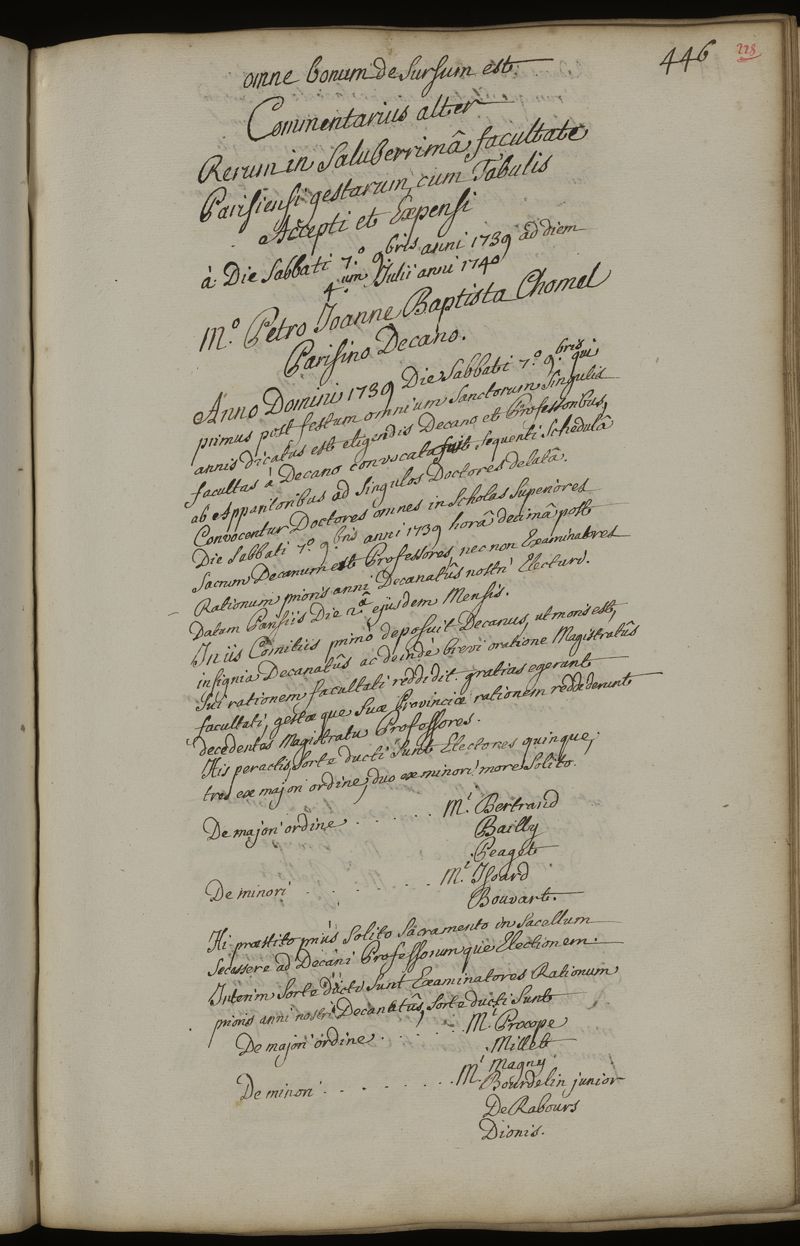 446 228
omne bonum de sursum est.
Commentarius alter
Rerum in Saluberrimâ facultate
Parisiensi gestarum, cum Tabulis
Accepti et Expensi
à Die Sabbati 7.º 9bris anni 1739 ad diem
4.um Julii anni 1740
M.º Petro Joanne Baptista Chomel
Parisino Decano.
Anno Domini 1739 Die Sabbati 7.º 9.bris qui
primus post festum omnium Sanctorum Singulis
annis dicatus est eligendis Decano et Professoribus,
facultas à Decano convocata fuit sequenti Schedulâ
ab Apparitoribus ad Singulos Doctores delatâ.
Convocentur Doctores omnes in Scholas Superiores
Die Sabbati 7.º 9bris anni 1739 horâ decimâ post
Sacrum Decanum et Professores, nec non Examinatores
Rationum prioris anni Decanatûs nostri Electuri.
Datum Parisiis Die 2.â ejusdem Mensis.
In iis Comitiis primò deposuit Decanus, ut moris est,
insignia Decanatûs ac deindè brevi oratione Magistratûs
Sui rationem facultati reddidit. gratias egerunt
facultati, gestæque Suæ Provinciæ rationem reddiderunt
decedentes Magistratu Professores.
His peractis, Sorte ducti Sunt Electores quinque,
tres ex majori ordine, duo ex minori more Solito.
De majori ordine . . . . . . M.i Bertrand
Bailly
Peaget
De minori . . . . . . . M.i Isoard
Bouvart.
Hi præstito priùs Solito Sacramento in Sacellum
Secessere ad Decani Professorumque Electionem.
Interim Sorte ducti Sunt Examinatores Rationum
prioris anni nostri Decanatûs, Sorte ducti Sunt
De majori ordine . . . . . . M.i Procope
Millet
Magny
De minori . . . . . . . . M.i Bourdelin junior
De Rabours
Dionis.